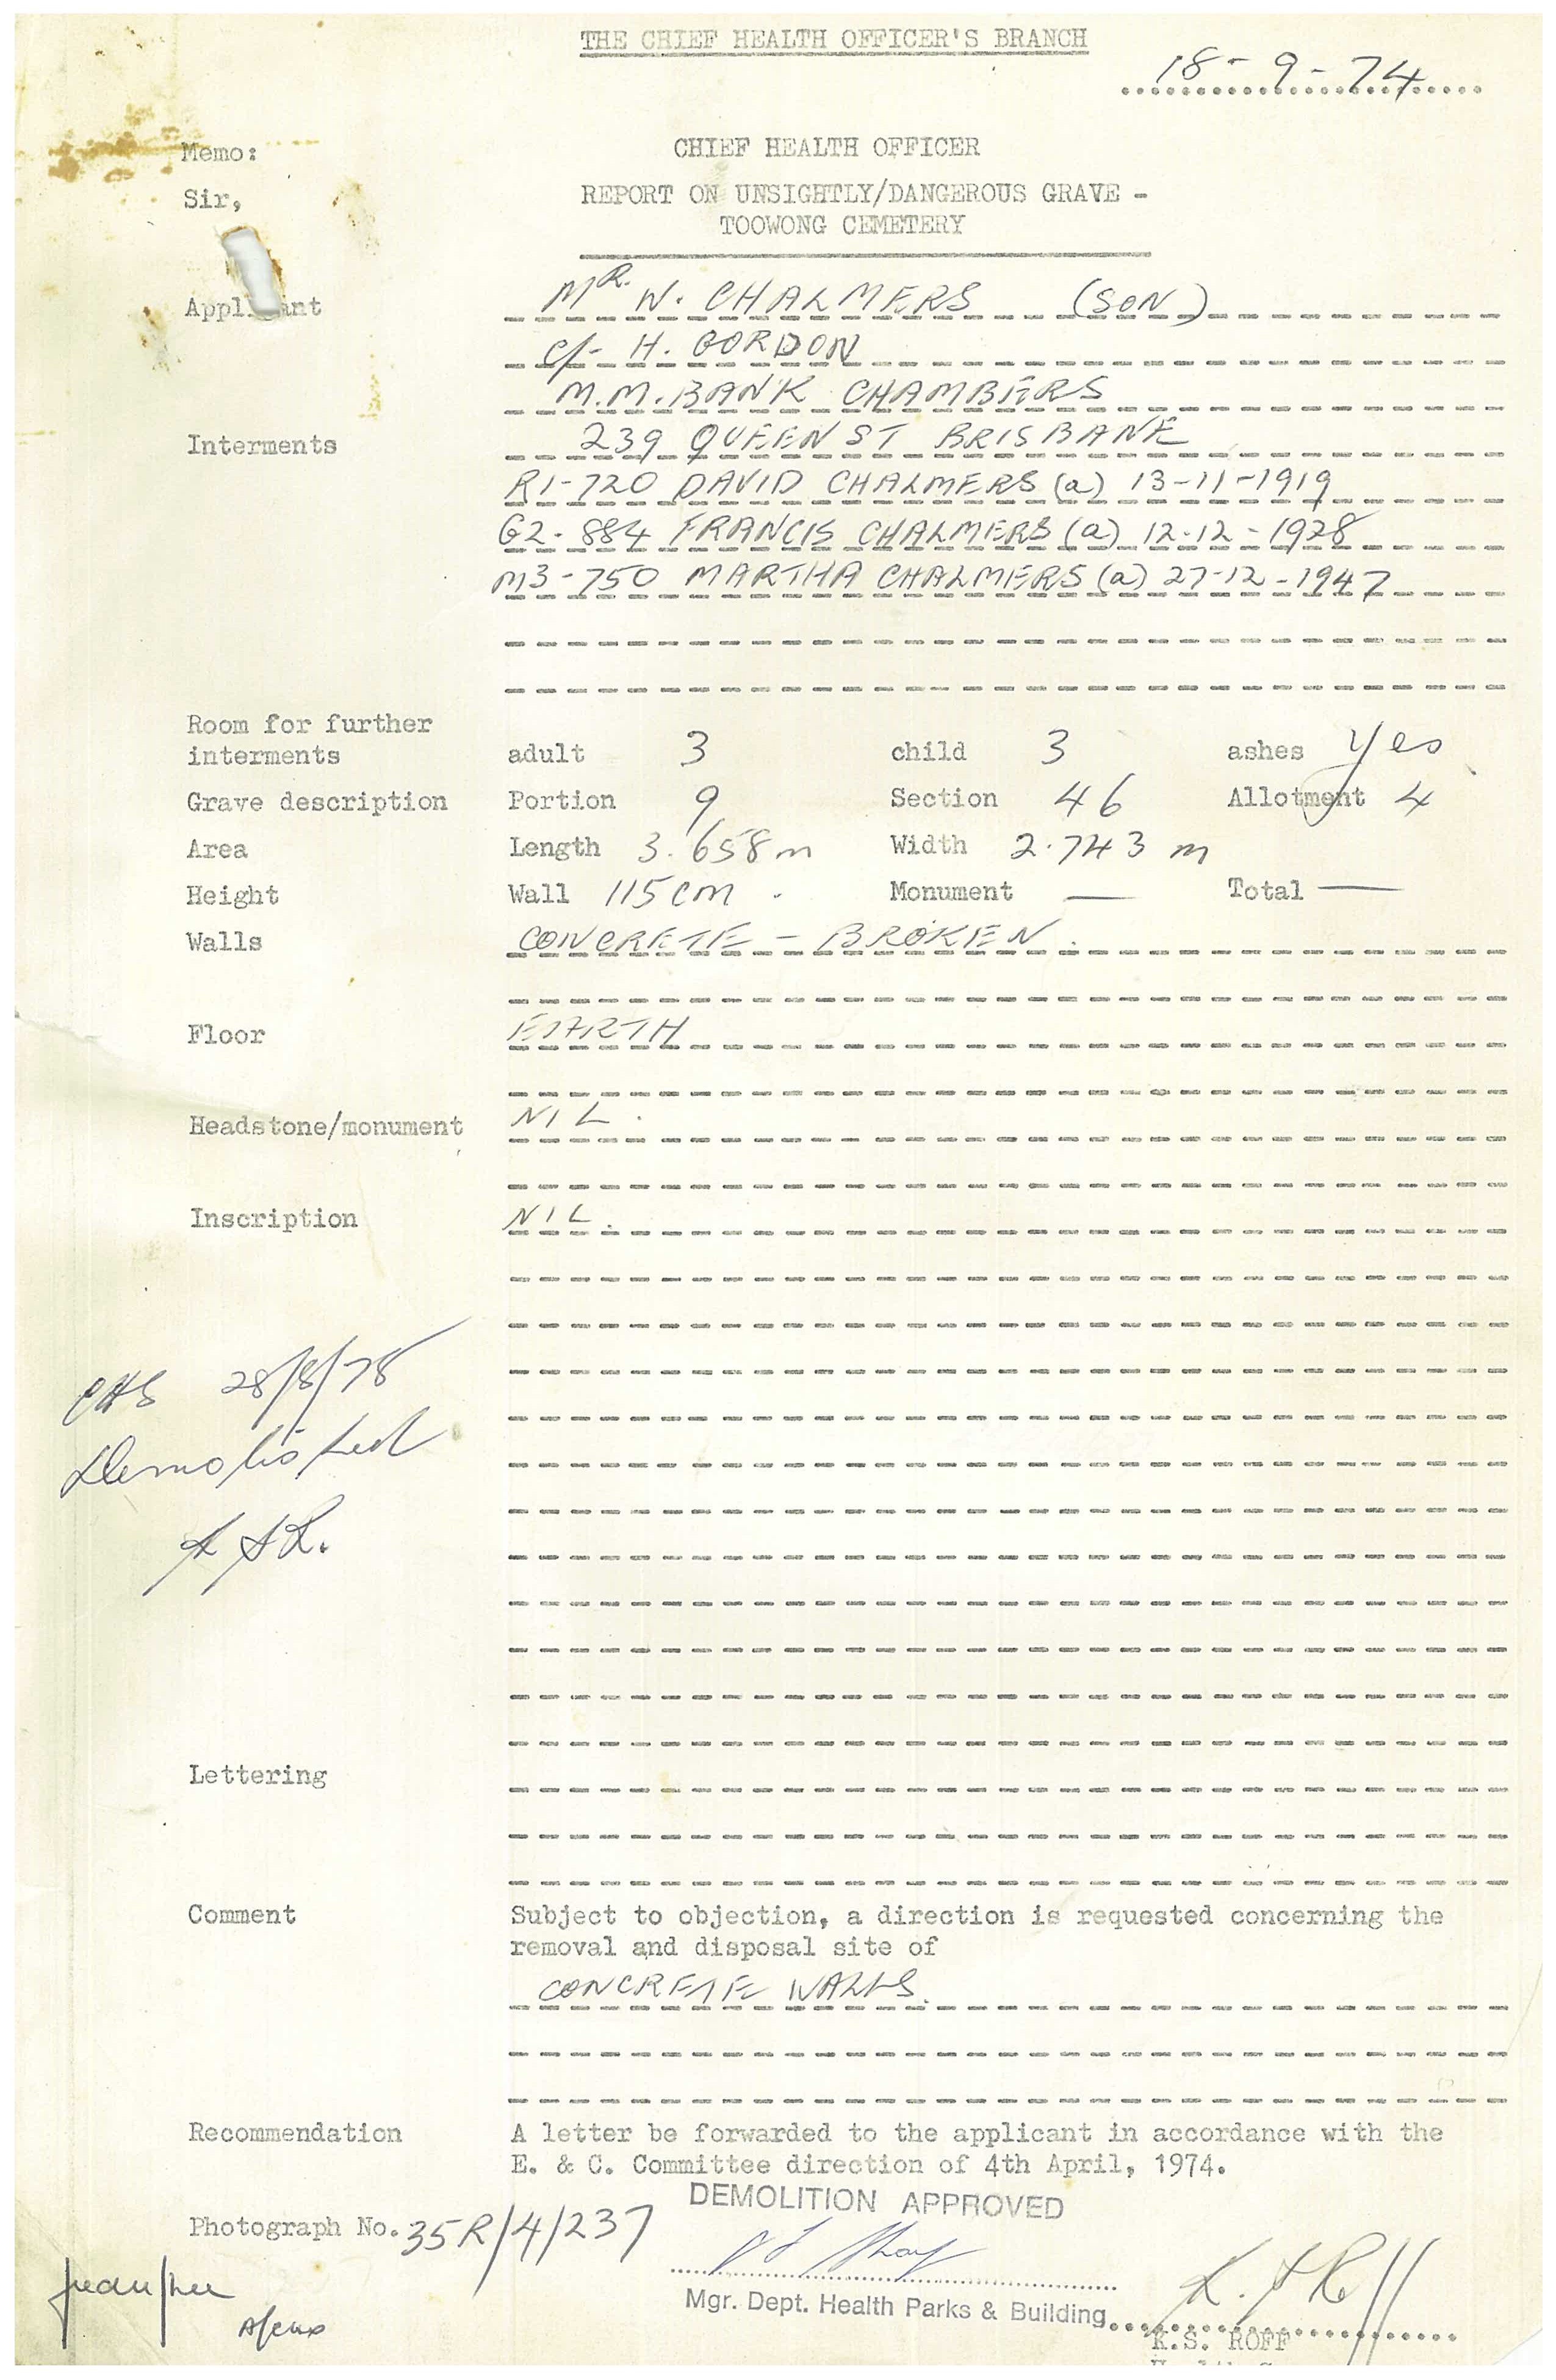 THE CHIEF HEALTH OFFICER'S BRANCH
18-9-74
Memo:
CHIEF HEALTH OFFICER
Sir,
REPORT ON UNSIGHTLY/DANGEROUS GRAVE -
TOOWONG CEMETERY
Applicant MR. W. CHALMERS (SON)
C/- H. GORDON
M.M. BANK CHAMBERS
Interments 239 QUEEN ST BRISBANE
R1-720 DAVID CHALMERS (a) 13-11-1919
G2-884 FRANCIS CHALMERS (a) 12-12-1928
M3-750 MARTHA CHALMERS (a) 27-12-1947
Room for further
interments adult 3 child 3 ashes yes
Grave description Portion 9 Section 46 Allotment 4
Area Length 3.658m Width 2.743 m
Height Wall 115cm. Monument — Total —
Walls CONCRETE - BROKEN.
Floor EARTH
Headstone/monument NIL.
Inscription NIL.
28/8/78
Demolished
Lettering
Comment Subject to objection, a direction is requested concerning the
removal and disposal site of
CONCRETE WALLS.
Recommendation A letter be forwarded to the applicant in accordance with the
E. & C. Committee direction of 4th April, 1974.
DEMOLITION APPROVED
Photograph No. 35R/4/237
Mgr. Dept. Health Parks & Building
K.S. ROFF